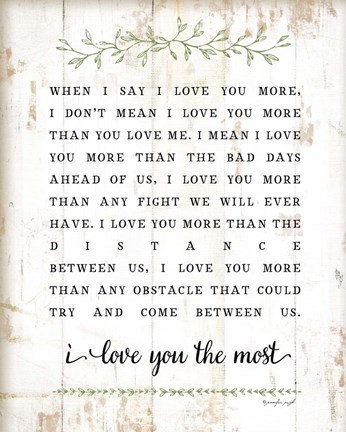 WHEN I SAY I LOVE YOU MORE,
I DON'T MEAN I LOVE YOU MORE
THAN YOU LOVE ME. I MEAN I LOVE
YOU MORE THAN THE BAD DAYS
AHEAD OF US, I LOVE YOU MORE
THAN ANY FIGHT WE WILL EVER
HAVE. I LOVE YOU MORE THAN THE
D I S T A N C E
BETWEEN US, I LOVE YOU MORE
THAN ANY OBSTACLE THAT COULD
TRY AND COME BETWEEN US.
i love you the most